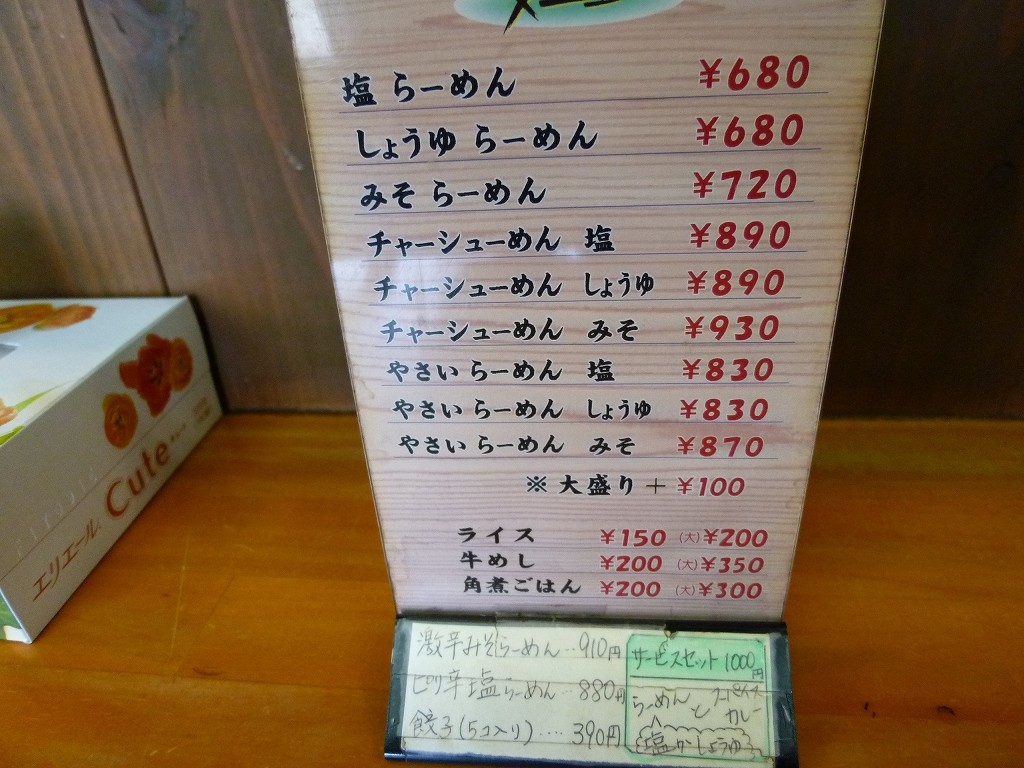 メニュー
塩 らーめん ¥680
しょうゆ らーめん ¥680
みそ らーめん ¥720
チャーシューめん 塩 ¥890
チャーシューめん しょうゆ ¥890
チャーシューめん みそ ¥930
やさい らーめん 塩 ¥830
やさい らーめん しょうゆ ¥830
やさい らーめん みそ ¥870
※ 大盛り + ¥100
ライス ¥150 (大)¥200
牛めし ¥200 (大)¥350
角煮ごはん ¥200 (大)¥300
激辛みそらーめん‥910円
ピリ辛塩らーめん‥880円
餃子(5コ入り)‥‥390円
サービスセット1000円
らーめんと
カレー
塩かしょうゆ
エリエール Cute